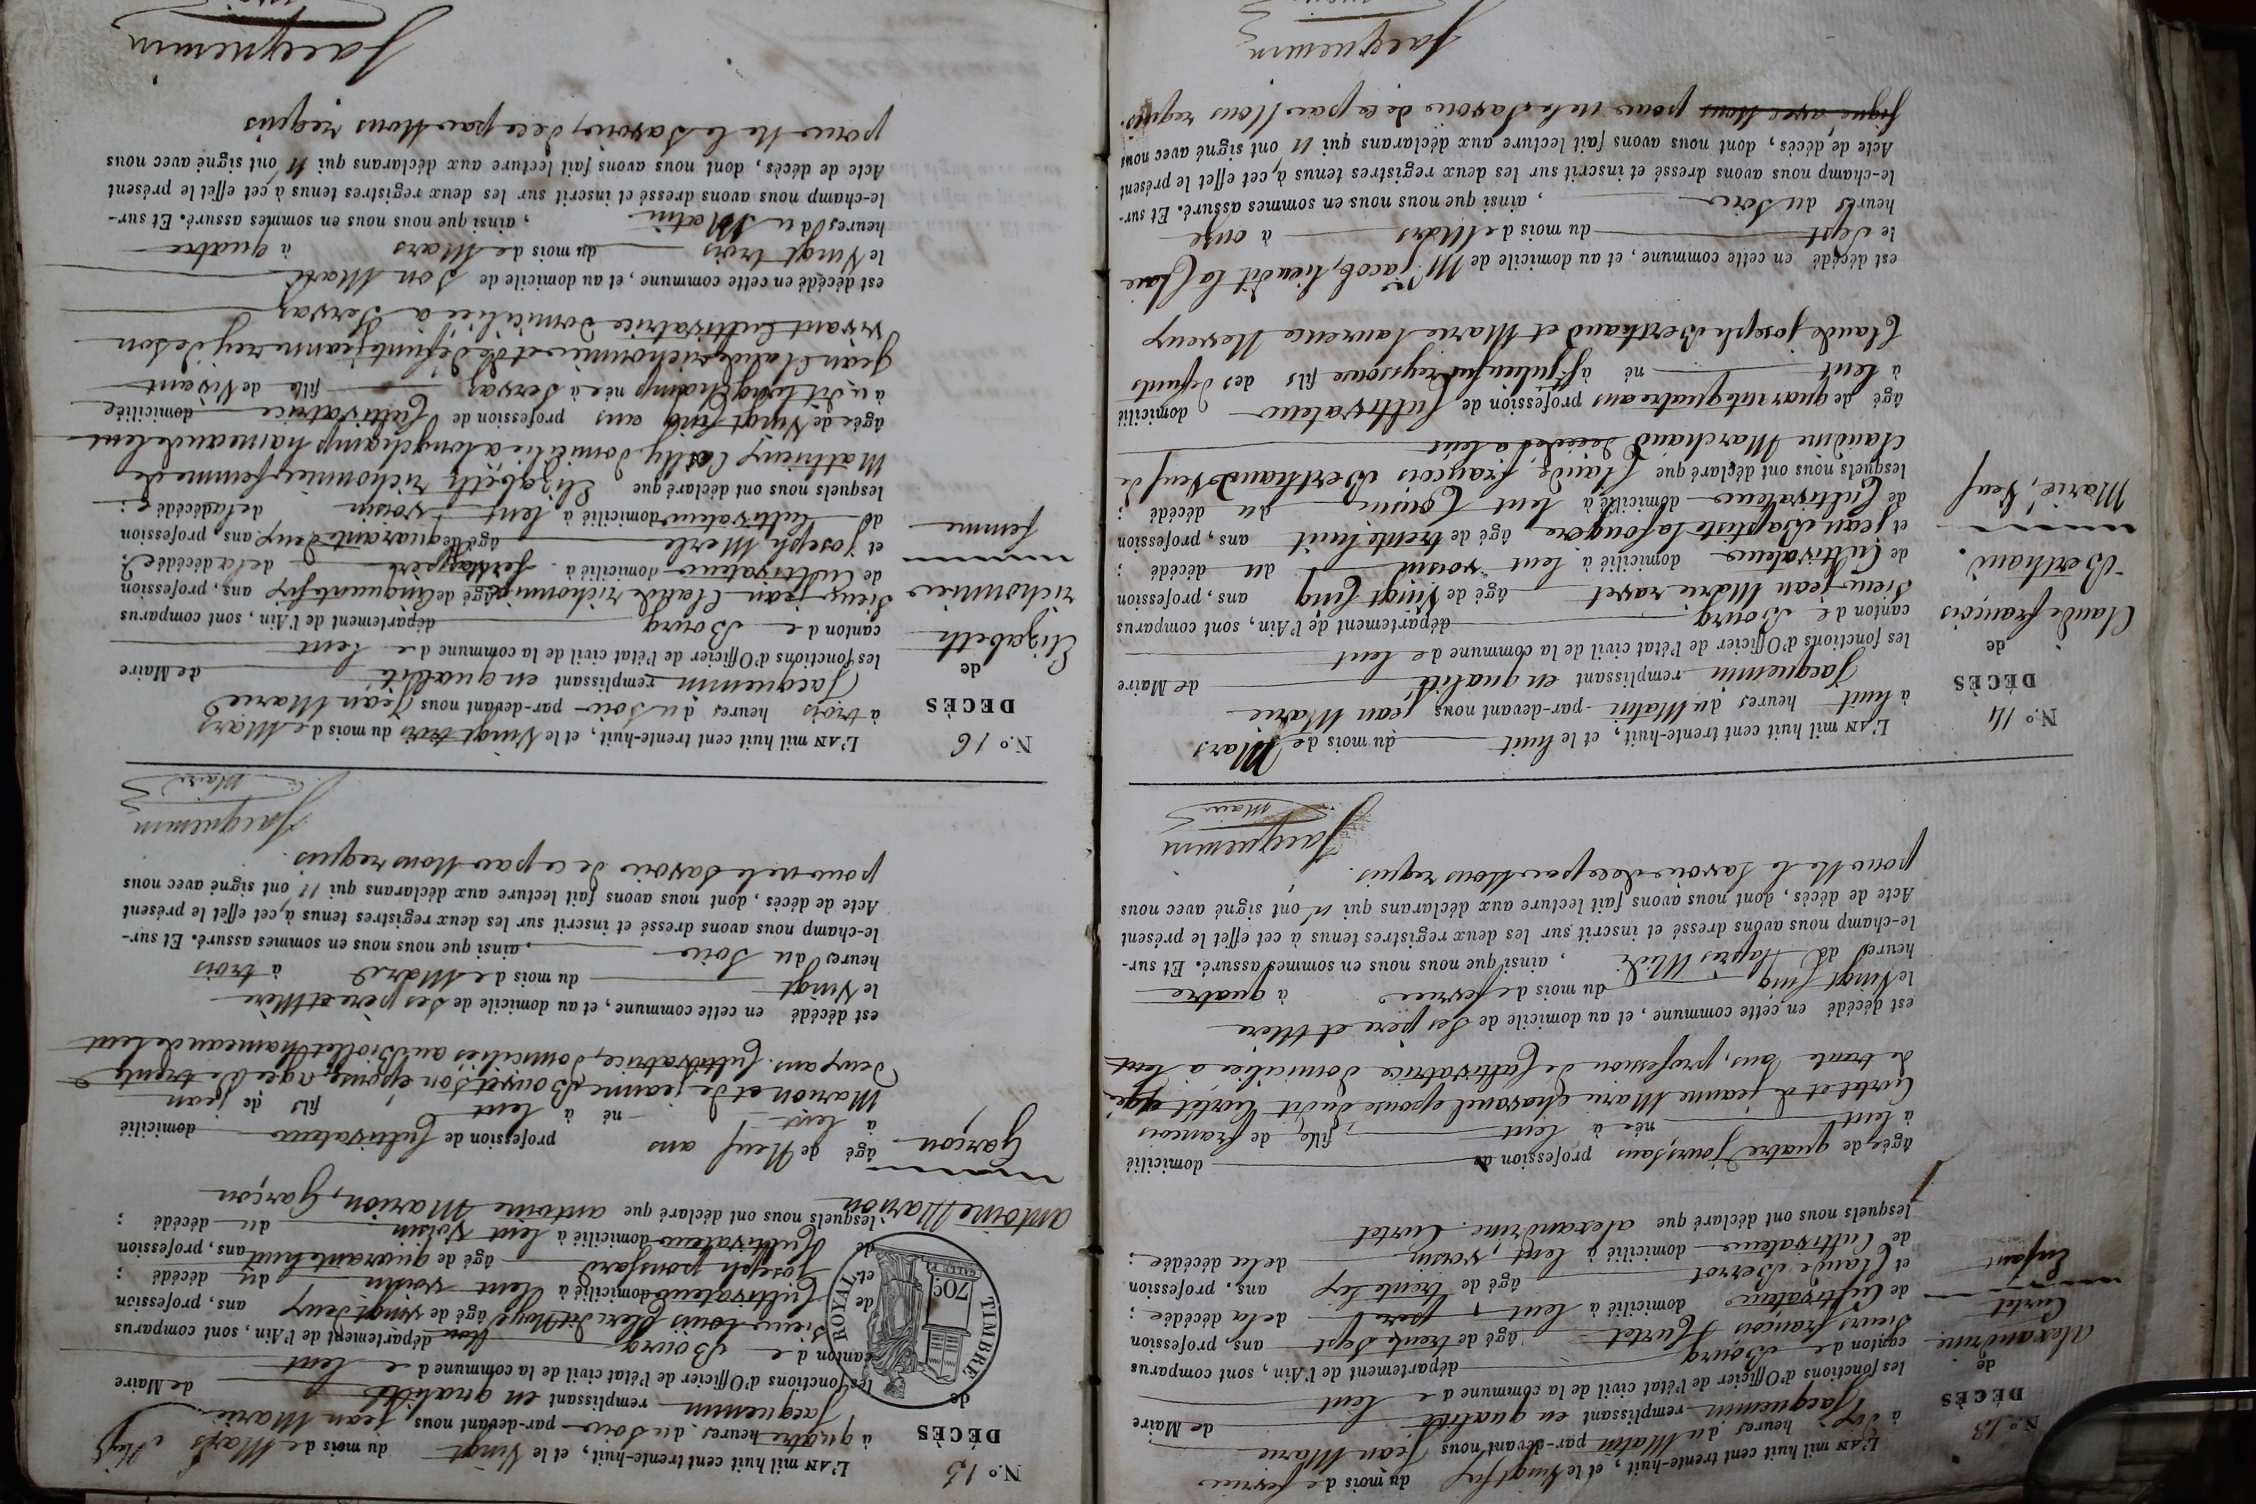 N.º 13
DÉCÈS
de
Alexandrine
Curtet
Enfant
L'AN mil huit cent trente-huit, et le Vingt six du mois de fevrier
à dix heures du Matin par-devant nous Jean Marie
Jacquemin remplissant en qualité de Maire
les fonctions d'Officier de l'état civil de la commune de lent
canton de Bourg département de l'Ain, sont comparus
Sieurs francois Curtet âgé de trente sept ans, profession
de Cultivateur domicilié à lent, père de la décédée ;
et Claude Berrot âgé de trente six ans, profession
de Cultivateur domicilié à lent, voisin de la décédée ;
lesquels nous ont déclaré que alexandrine Curtet
âgée de quatre jours, sans profession domicilié
à lent née à lent, fille de francois
Curtet et de jeanne Marie chavanel epouse dudit Curtet agé
de trente ans, profession de Cultivatrice domiciliée à lent
est décédé en cette commune, et au domicile de Ses père et Mère
le Vingt Cinq du mois de fevrier à quatre
heures d'après Midi, ainsi que nous nous en sommes assuré. Et sur-
le-champ nous avons dressé et inscrit sur les deux registres tenus à cet effet le présent
Acte de décès, dont nous avons fait lecture aux déclarans qui n'ont signé avec nous
pour Ne le Savoir de ce par Nous requis.
Jacquemin
Maire
N.º 14
DÉCÈS
de
Claude françois
Berthaud
Marié, Veuf
L'AN mil huit cent trente-huit, et le huit du mois de Mars
à huit heures du Matin par-devant nous Jean Marie
Jacquemin remplissant en qualité de Maire
les fonctions d'Officier de l'état civil de la commune de lent
canton de Bourg département de l'Ain, sont comparus
Sieurs jean Marie ravet âgé de Vingt Cinq ans, profession
de Cultivateur domicilié à lent voisin du décédé ;
et jean Baptiste lafougère âgé de trente huit ans, profession
de Cultivateur domicilié à lent Voisin du décédé ;
lesquels nous ont déclaré que Claude françois Berthaud Veuf de
claudine Marchand décédée à lent
âgé de quarante quatre ans profession de Cultivateur domicilié
à lent né à St julien sur reyssouze fils des defunts
Claude joseph Berthaud et Marie laurence Neveux
est décédé en cette commune, et au domicile de Mr. jacob, lieu dit la
le Sept du mois de Mars à onze
heures du Soir, ainsi que nous nous en sommes assuré. Et sur-
le-champ nous avons dressé et inscrit sur les deux registres tenus à cet effet le présent
Acte de décès, dont nous avons fait lecture aux déclarans qui n'ont signé avec nous
signé avec Nous pour Ne le Savoir de ce par Nous requis.
Jacquemin
N.º 15
DÉCÈS
de
antoine Marion
Garçon
TIMBRE ROYAL
70c
L'AN mil huit cent trente-huit, et le Vingt du mois de Mars
à quatre heures du Soir par-devant nous Jean Marie
Jacquemin remplissant en qualité de Maire
les fonctions d'Officier de l'état civil de la commune de lent
canton de Bourg département de l'Ain, sont comparus
Sieurs louis Clerc âgé de vingt deux ans, profession
de Cultivateur domicilié à lent voisin du décédé ;
et Joseph ponsard âgé de quarante huit ans, profession
de Cultivateur domicilié à lent Voisin du décédé ;
lesquels nous ont déclaré que antoine Marion, Garçon
âgé de Neuf ans profession de Cultivateur domicilié
à lent né à lent, fils de jean
Marion et de jeanne Bouvet son épouse, agée de trente
deux ans. Cultivatrice, domiciliés au Biollet hameau de lent
est décédé en cette commune, et au domicile de Ses père et Mère
le Vingt du mois de Mars à trois
heures du Soir, ainsi que nous nous en sommes assuré. Et sur-
le-champ nous avons dressé et inscrit sur les deux registres tenus à cet effet le présent
Acte de décès, dont nous avons fait lecture aux déclarans qui n'ont signé avec nous
pour ne le Savoir de ce par Nous requis.
Jacquemin
Maire
N.º 16
DÉCÈS
de
Elizabeth
richonnier
femme
L'AN mil huit cent trente-huit, et le Vingt trois du mois de Mars
à trois heures du Soir par-devant nous Jean Marie
Jacquemin remplissant en qualité de Maire
les fonctions d'Officier de l'état civil de la commune de lent
canton de Bourg département de l'Ain, sont comparus
Sieurs jean Claude richonnier âgé de Cinquante six ans, profession
de Cultivateur domicilié à Servas père de la décédée ;
et joseph Merle âgé de quarante deux ans, profession
de Cultivateur domicilié à lent voisin de la décédée ;
lesquels nous ont déclaré que Elizabeth richonnier femme de
Mathieu domicilié a longchamp hameau de lent
âgée de Vingt Cinq ans profession de Cultivatrice domiciliée
à u dit longchamp née à Servas fille de Vivant
Jean Claude richonnier et de défunte jeanne rey de son
vivant Cultivatrice domiciliée à Servas
est décédée en cette commune, et au domicile de Son Mari
le Vingt trois du mois de Mars à quatre
heures du Matin, ainsi que nous nous en sommes assuré. Et sur-
le-champ nous avons dressé et inscrit sur les deux registres tenus à cet effet le présent
Acte de décès, dont nous avons fait lecture aux déclarans qui n'ont signé avec nous
pour Ne le Savoir, de ce par Nous requis
Jacquemin